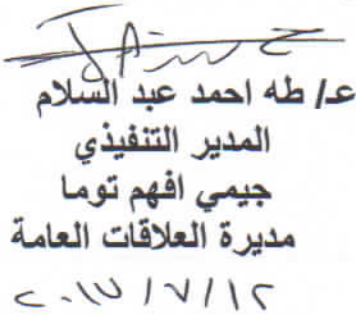 عـ/ طه احمد عبد السلام
المدير التنفيذي
جيمي افهم توما
مديرة العلاقات العامة
٢٠١٧/٧/١٢